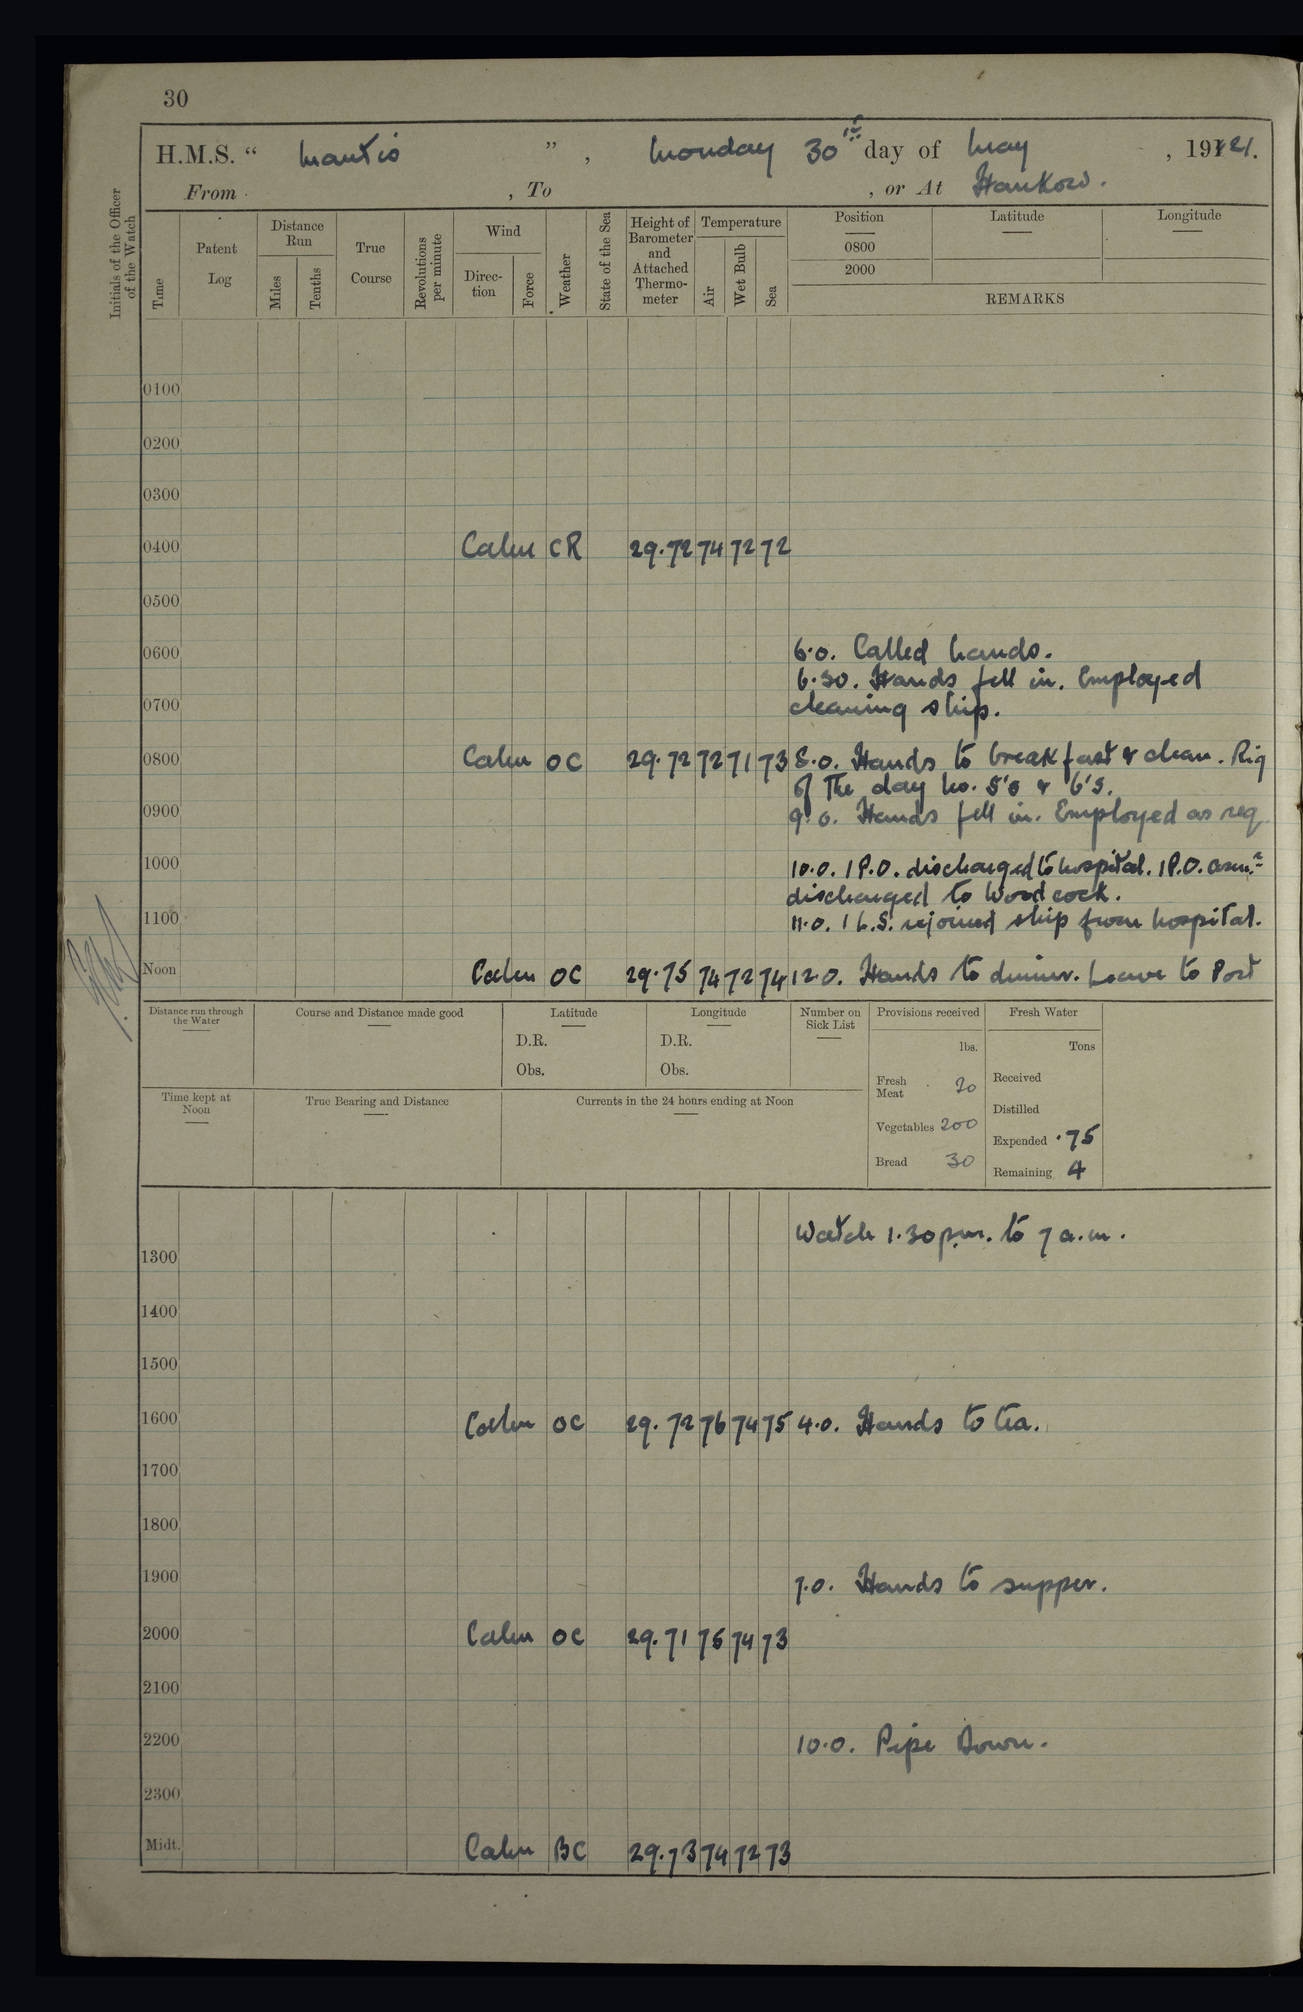 30
H.M.S. “ Mantis ” , Monday 30th day of May , 1921.
From , To , or At Hankow.
Initials of the Officer of the Watch
Time
Patent Log
Distance Run
Miles
Tenths
True Course
Revolutions per minute
Wind
Direc-tion
Force
Weather
State of the Sea
Height of Barometer and Attached Thermo-meter
Temperature
Air
Wet Bulb
Sea
Position
0800
2000
Latitude
Longitude
REMARKS
0100
0200
0300
0400 Calm CR 29.72 74 72 72
0500
0600 6.0. Called hands.
6.30. Hands fell in. Employed
0700 cleaning ship.
0800 Calm OC 29.72 72 71 73 8.0. Hands to breakfast & clean. Rig
of the day No. 5's & 6's.
0900 9.0. Hands fell in. Employed as req
1000 10.0. 1 P.O. discharged to hospital. 1 P.O.
discharged to Woodcock.
1100 11.0. 1 L.S. rejoined ship from hospital.
Noon Calm OC 29.75 74 72 74 12.0. Hands to dinner. Leave to Port
Distance run through the Water
Course and Distance made good
Latitude
D.R.
Obs.
Longitude
D.R.
Obs.
Number on Sick List
Provisions received
lbs.
Fresh Meat 20
Vegetables 200
Bread 30
Fresh Water
Tons
Received
Distilled
Expended .75
Remaining 4
Time kept at Noon
True Bearing and Distance
Currents in the 24 hours ending at Noon
Watch 1.30 p.m. to 7 a.m.
1300
1400
1500
1600 Calm OC 29.72 76 74 75 4.0. Hands to tea.
1700
1800
1900 7.0. Hands to supper.
2000 Calm OC 29.71 75 74 73
2100
2200 10.0. Pipe Down.
2300
Midt. Calm BC 29.73 74 72 73